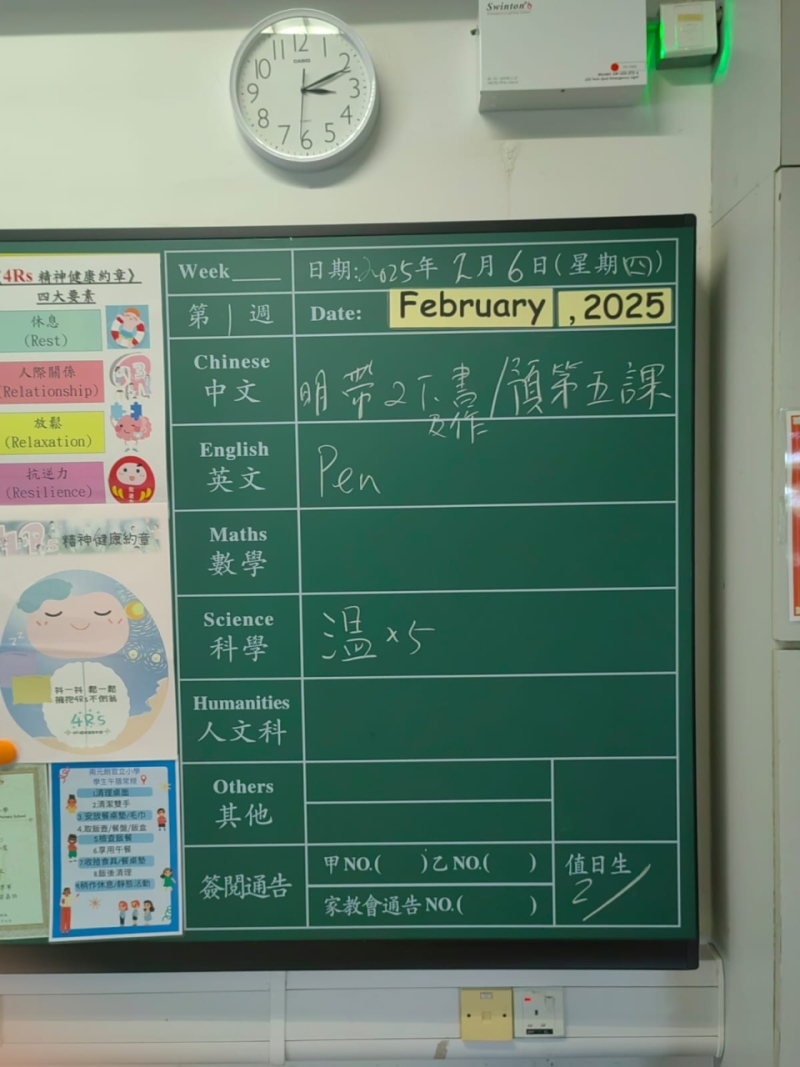 12
11
1
10
2
CASIO
9
3
8
4
7
5
6
Swinton's
《4Rs 精神健康約章》
四大要素
休息
(Rest)
人際關係
(Relationship)
放鬆
(Relaxation)
抗逆力
(Resilience)
4Rs 精神健康約章
抖一抖 鬆一鬆
擁抱4Rs不倒翁
4Rs
南元朗官立小學
學生午膳常規
1.清理桌面
2.清潔雙手
3.安放餐桌墊/毛巾
4.取飯壺/餐盤/飯盒
5.檢查飯餐
6.享用午餐
7.收拾食具/餐桌墊
8.飯後清理
9.稍作休息/靜態活動
Week
日期:2025年 2月 6日(星期四)
第 1 週
Date: February , 2025
Chinese
中文
明帶2下書/預第五課
English
英文
Pen
Maths
數學
Science
科學
溫x5
Humanities
人文科
Others
其他
簽閱通告
甲NO.( )乙NO.( )
家教會通告NO.( )
值日生
2/